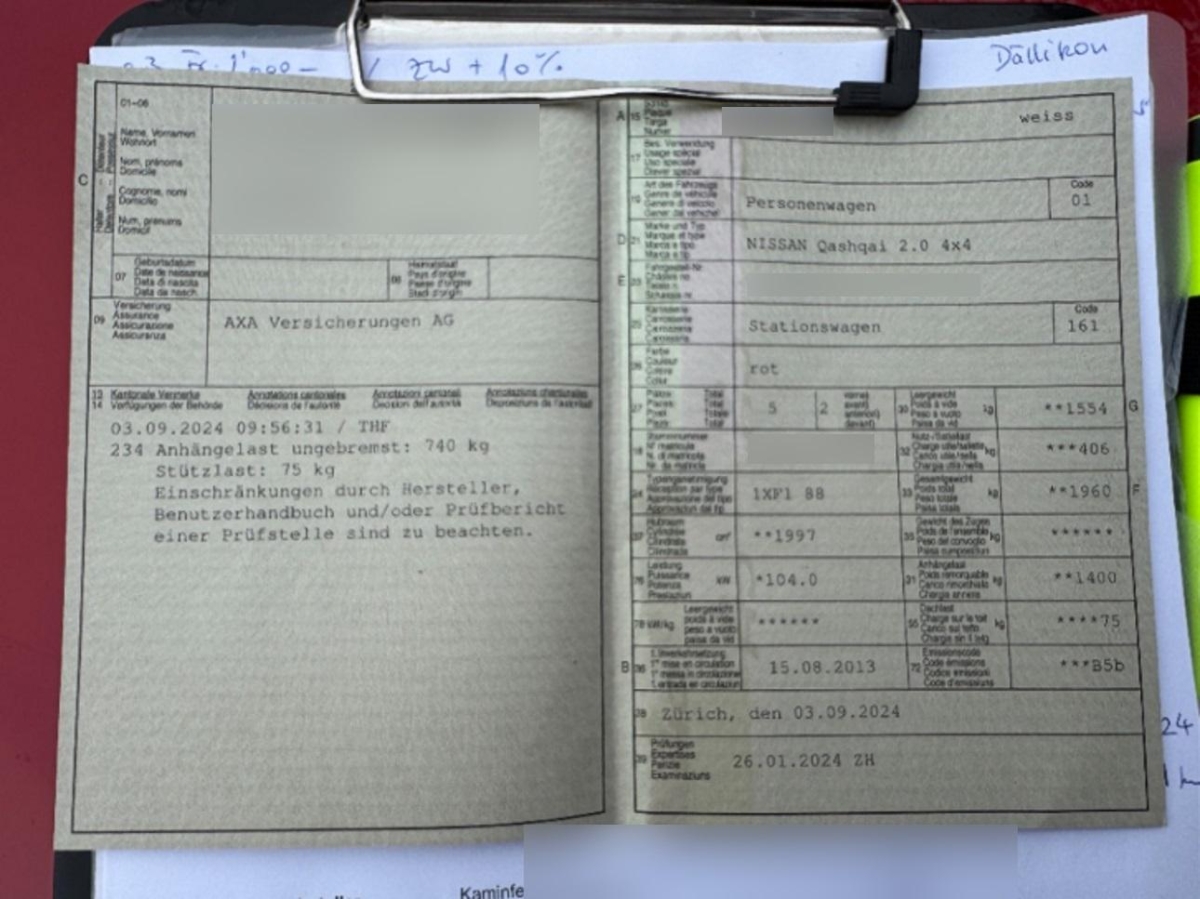 Fr. 1'000.- / zw + 10%
Dällikon
01-06
Name, Vornamen
Wohnort
Nom, prénoms
Domicile
Cognome, nomi
Domicilio
Num, prenums
Domicil
C
07
Geburtsdatum
Date de naissance
Data di nascita
Data da nasch.
08
Heimatstaat
Pays d'origine
Paese d'origine
Stadi d'origin
09
Versicherung
Assurance
Assicurazione
Assicuranza
AXA Versicherungen AG
13 Kantonale Vermerke Annotations cantonales Annotazioni cantonali Annotaziuns chantunalas
14 Verfügungen der Behörde Décisions de l'autorité Decisioni dell'autorità Disposiziuns da l'autoritad
03.09.2024 09:56:31 / THF
234 Anhängelast ungebremst: 740 kg
Stützlast: 75 kg
Einschränkungen durch Hersteller,
Benutzerhandbuch und/oder Prüfbericht
einer Prüfstelle sind zu beachten.
A 15
Plaque
Targa
Numer
weiss
17
Bes. Verwendung
Usage spécial
Uso speciale
Diever spezial
19
Art des Fahrzeugs
Genre de véhicule
Genere di veicolo
Gener dal vehichel
Personenwagen
Code
01
D 21
Marke und Typ
Marque et type
Marca e tipo
Marca e tip
NISSAN Qashqai 2.0 4x4
E 23
Fahrgestell-Nr.
Châssis no
Telaio n.
Schassis nr.
25
Karosserie
Carrosserie
Carrozzeria
Carossaria
Stationswagen
Code
161
26
Farbe
Couleur
Colore
Colur
rot
27
Plätze Total
Places Total
Posti Totale
Plazs Total
5
2
vorne
avant
anteriori
davant
30
Leergewicht
Poids à vide
Peso a vuoto
Paisa da vid
kg
**1554
G
18
Stammnummer
N° matricule
N. di matricola
Nr. da matricla
32
Nutz-/Sattellast
Charge utile/sellette
Carico utile/sella
Chargia utila/sella
kg
***406
24
Typengenehmigung
Réception par type
Approvazione del tipo
Approvaziun dal tip
1XF1 88
33
Gesamtgewicht
Poids total
Peso totale
Paisa totala
kg
**1960
F
37
Hubraum
Cylindrée
Cilindrata
Cilindrada
cm³
**1997
35
Gewicht des Zuges
Poids de l'ensemble
Peso del convoglio
Paisa cumposiziun
kg
******
76
Leistung
Puissance
Potenza
Prestaziun
kW
*104.0
31
Anhängelast
Poids remorquable
Carico rimorchiato
Chargia annexa
kg
**1400
78 kW/kg
Leergewicht
poids à vide
peso a vuoto
paisa da vid
******
55
Dachlast
Charge sur le toit
Carico sul tetto
Chargia sin il tetg
kg
****75
B 36
1. Inverkehrsetzung
1re mise en circulation
1a messa in circolazione
1. entrada en circulaziun
15.08.2013
72
Emissionscode
Code émissions
Codice emissioni
Code d'emissiuns
***B5b
38 Zürich, den 03.09.2024
39
Prüfungen
Expertises
Perizie
Examinaziuns
26.01.2024 ZH
24
Kaminfe